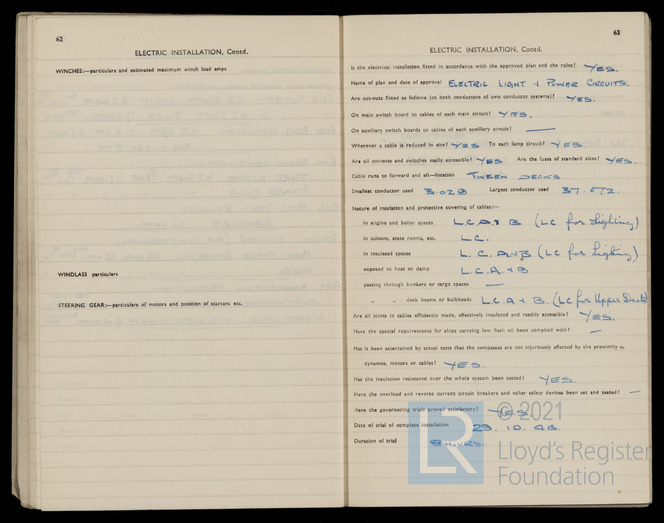 62
ELECTRIC INSTALLATION, Contd.
WINCHES:—particulars and estimated maximum winch load amps
WINDLASS particulars
STEERING GEAR:—particulars of motors and position of starters etc.
63
ELECTRIC INSTALLATION, Contd.
Is the electrical installation fitted in accordance with the approved plan and the rules? YES.
Name of plan and date of approval ELECTRIC LIGHT & POWER CIRCUITS.
Are cut-outs fitted as follows (to both conductors of two conductor systems)? YES.
On main switch board to cables of each main circuit? YES.
On auxiliary switch boards to cables of each auxiliary circuit? —
Wherever a cable is reduced in size? YES To each lamp circuit? YES.
Are all cut-outs and switches really accessible? YES Are the fuses of standard sizes? YES.
Cable runs to forward and aft—location TWEEN DECKS
Smallest conductor used 3.029 Largest conductor used 37.072.
Nature of insulation and protective covering of cables:—
In engine and boiler spaces L.C.A & B (LC for Lighting)
In saloons, state rooms, etc. L.C.
In insulated spaces L.C.A & B (LC for Lighting)
exposed to heat or damp L.C.A & B
passing through bunkers or cargo spaces —
„ „ deck beams or bulkheads L.C.A & B. (LC for Upper Deck)
Are all joints in cables efficiently made, effectively insulated and readily accessible? YES.
Have the special requirements for ships carrying low flash oil been complied with? —
Has it been ascertained by actual tests that the compasses are not injuriously affected by the proximity of
dynamos, motors or cables? YES.
Has the insulation resistance over the whole system been tested? YES.
Have the overload and reverse current circuit breakers and other safety devices been set and tested? —
Have the governoring trials proved satisfactory? YES
Date of trial of complete installation 29.10.48.
Duration of trial 6 HOURS.
© 2021
LR
Lloyd's Register
Foundation